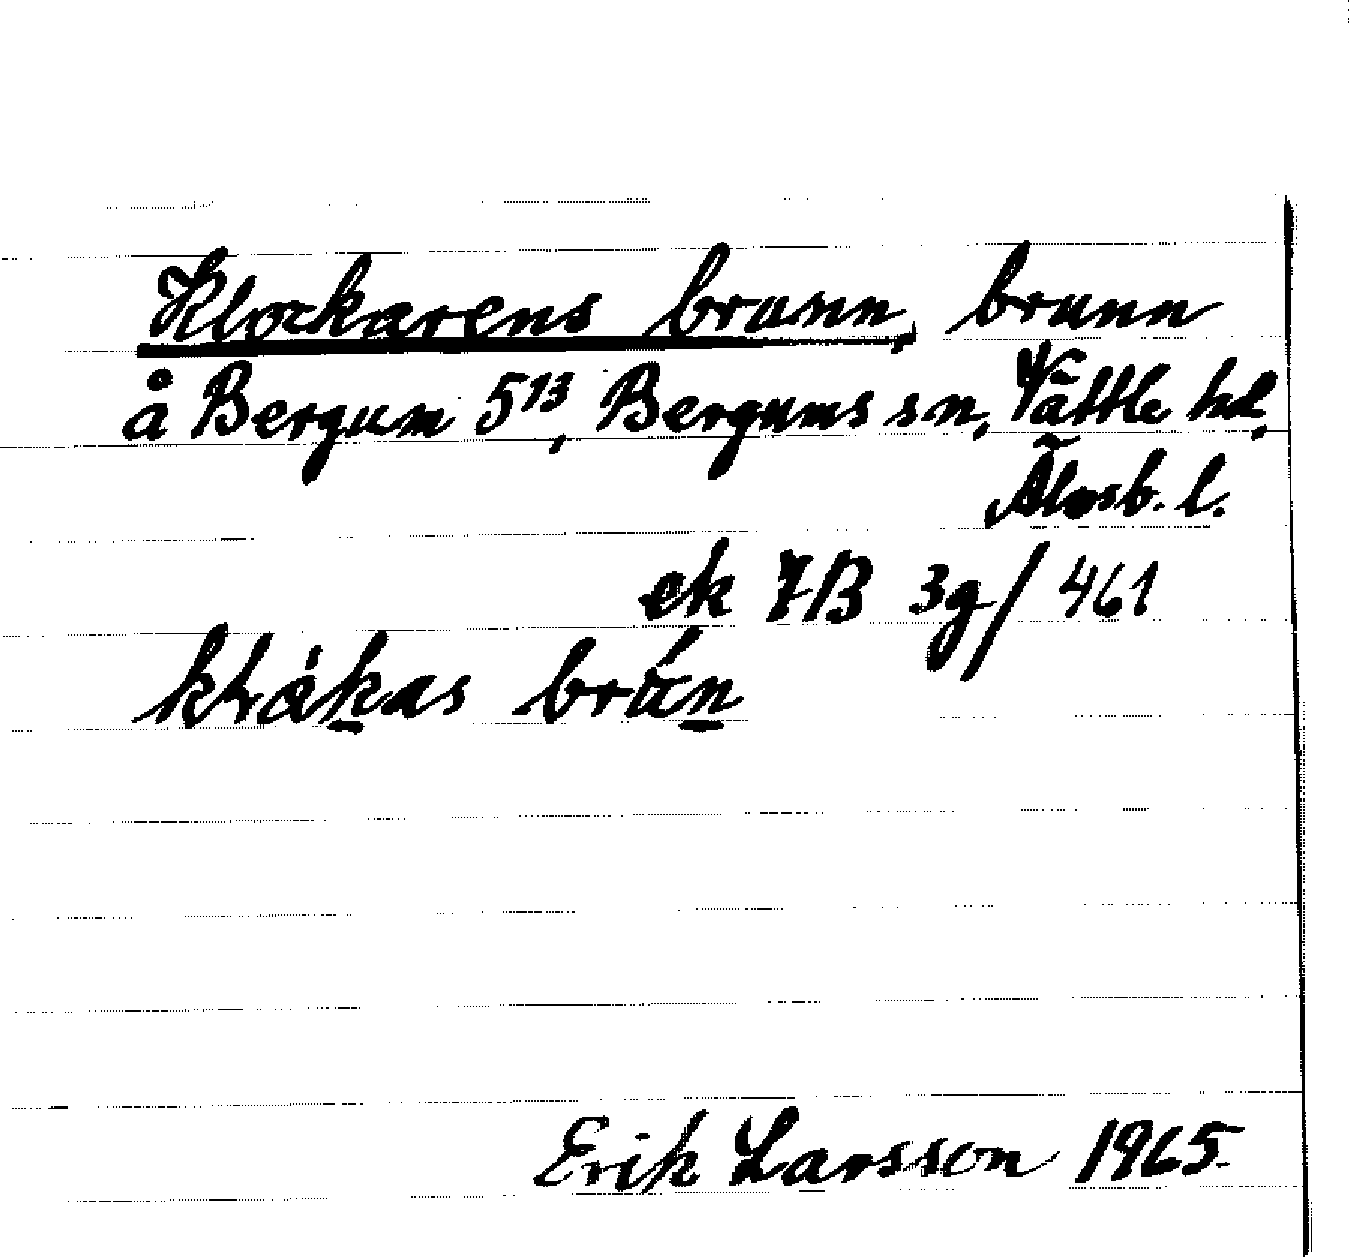 Klockarens brunn, brunn
å Bergum 5¹³, Bergums sn, Vättle hd,
Älvsb. l.
ek 7B 3g/461
brún
Erik Larsson 1965